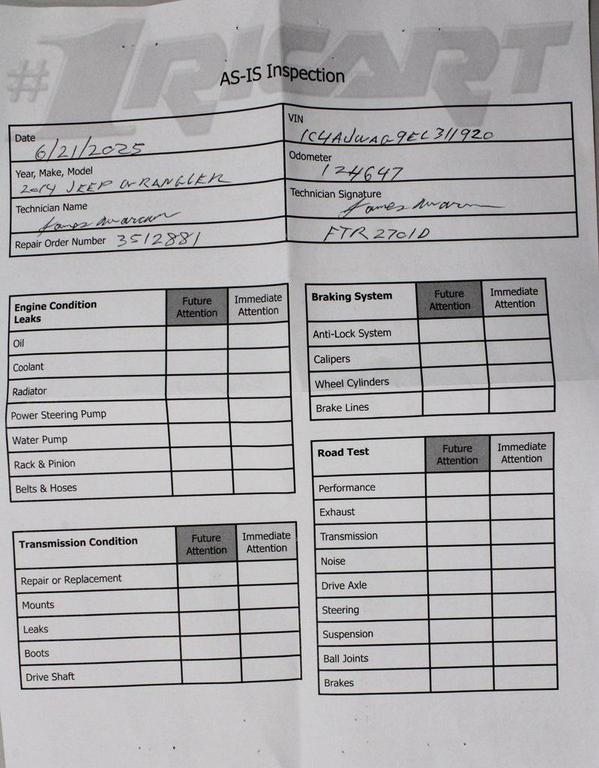 #1 RICART
AS-IS Inspection
Date 6/21/2025
VIN 1C4AJWAG9EL311920
Year, Make, Model 2014 JEEP WRANGLER
Odometer 124647
Technician Name James
Technician Signature James
Repair Order Number 3512881
FTR2701D
Engine Condition Leaks Future Attention Immediate Attention
Oil
Coolant
Radiator
Power Steering Pump
Water Pump
Rack & Pinion
Belts & Hoses
Braking System Future Attention Immediate Attention
Anti-Lock System
Calipers
Wheel Cylinders
Brake Lines
Transmission Condition Future Attention Immediate Attention
Repair or Replacement
Mounts
Leaks
Boots
Drive Shaft
Road Test Future Attention Immediate Attention
Performance
Exhaust
Transmission
Noise
Drive Axle
Steering
Suspension
Ball Joints
Brakes